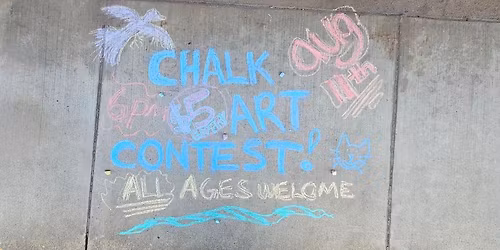 CHALK
ART
CONTEST!
aug
11th
6pm
ALL AGES WELCOME